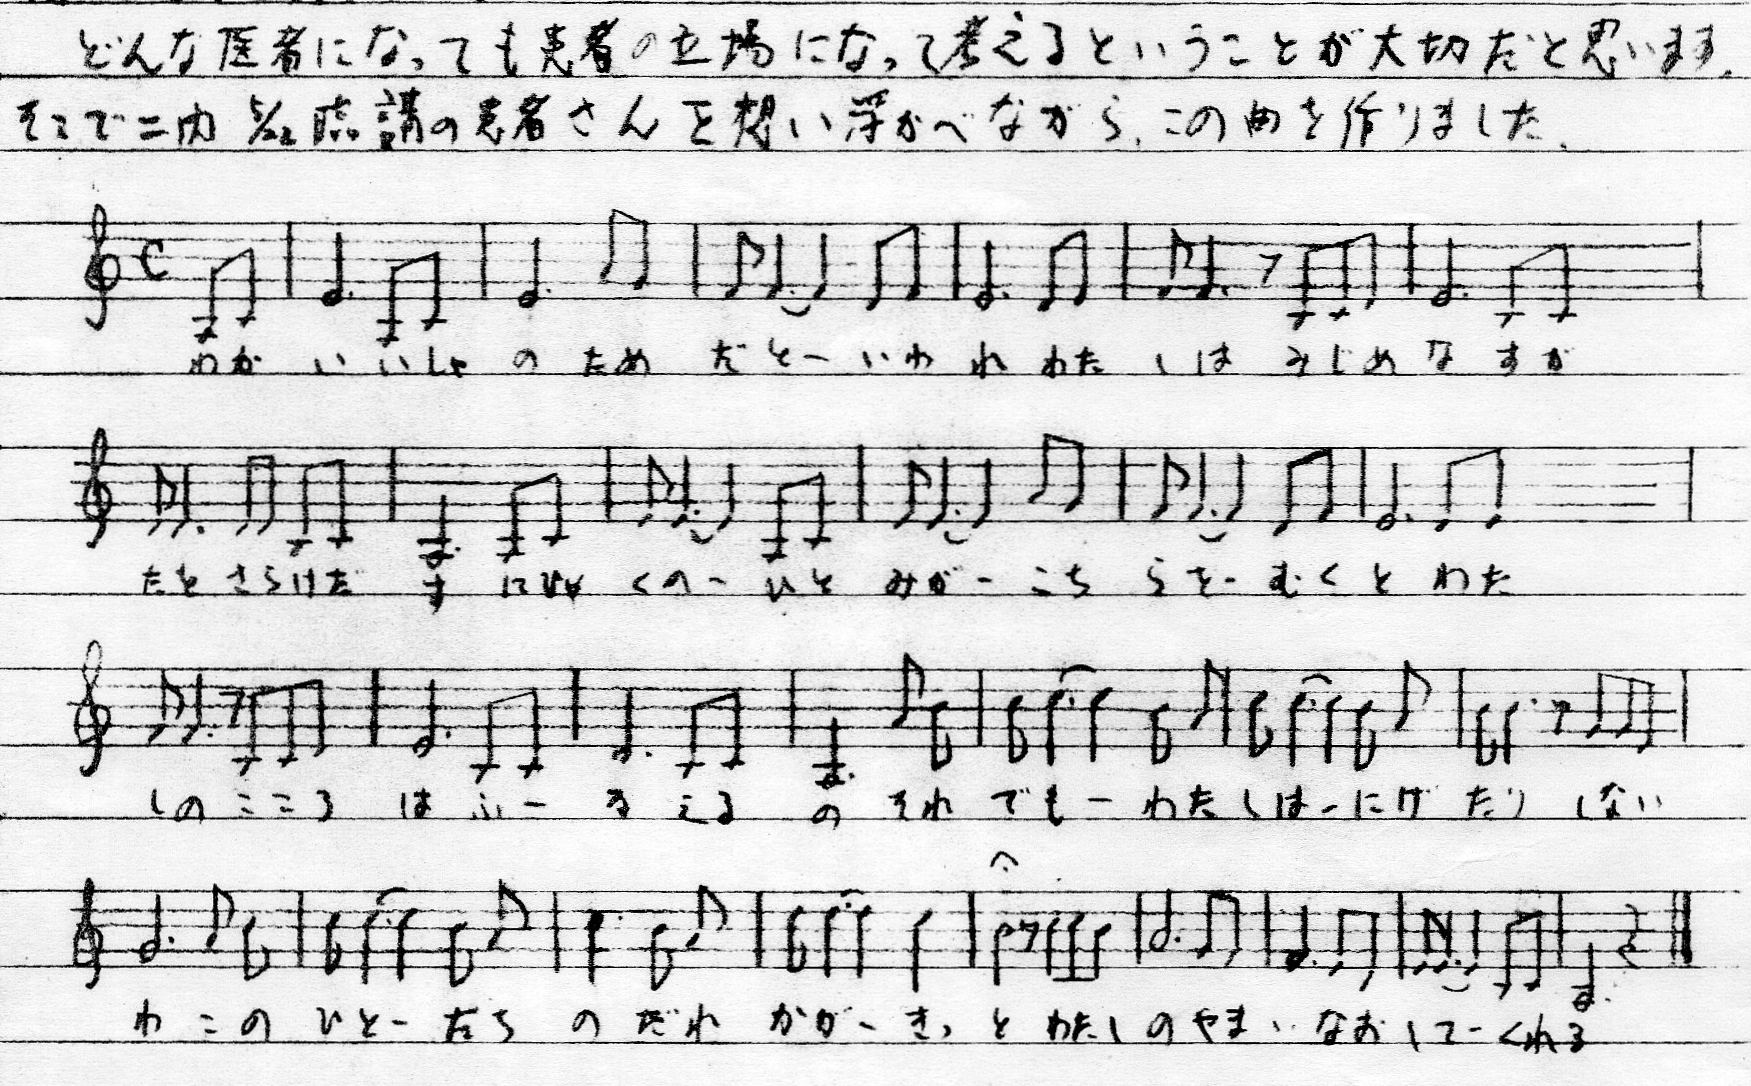 どんな医者になっても患者の立場になって考えるということが大切だと思います.
そこで二内 5/22 臨講の患者さんを想い浮かべながら、この曲を作りました.
わか い いしゃ の ため だ とー いわ れ わた しは みじめ な すが
たを さらけだ す にひゃ くのー ひと みがー こち らをー むくと わた
しの こころ は ふー る える の それ でもー わた しはーにげ だり しない
わ この ひとー たち の だれ かがー きっ と わたし の やま い なお してー くれる